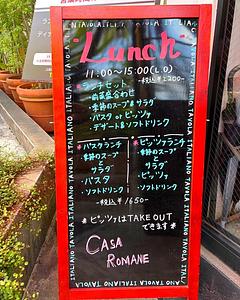 Lunch
11:00~15:00(L.O)
ランチセット
税込¥2200-
・前菜盛合わせ
・季節のスープ&サラダ
・パスタ or ピッツァ
・デザート&ソフトドリンク
*パスタランチ
・季節のスープ
と
サラダ
・パスタ
・ソフトドリンク
*ピッツァランチ
・季節のスープ
と
サラダ
・ピッツァ
・ソフトドリンク
税込¥1650-
*ピッツァはTAKE OUT
できます*
CASA
ROMANE
TAVOLA ITALIANO TAVOLA ITALIANO TAVOLA